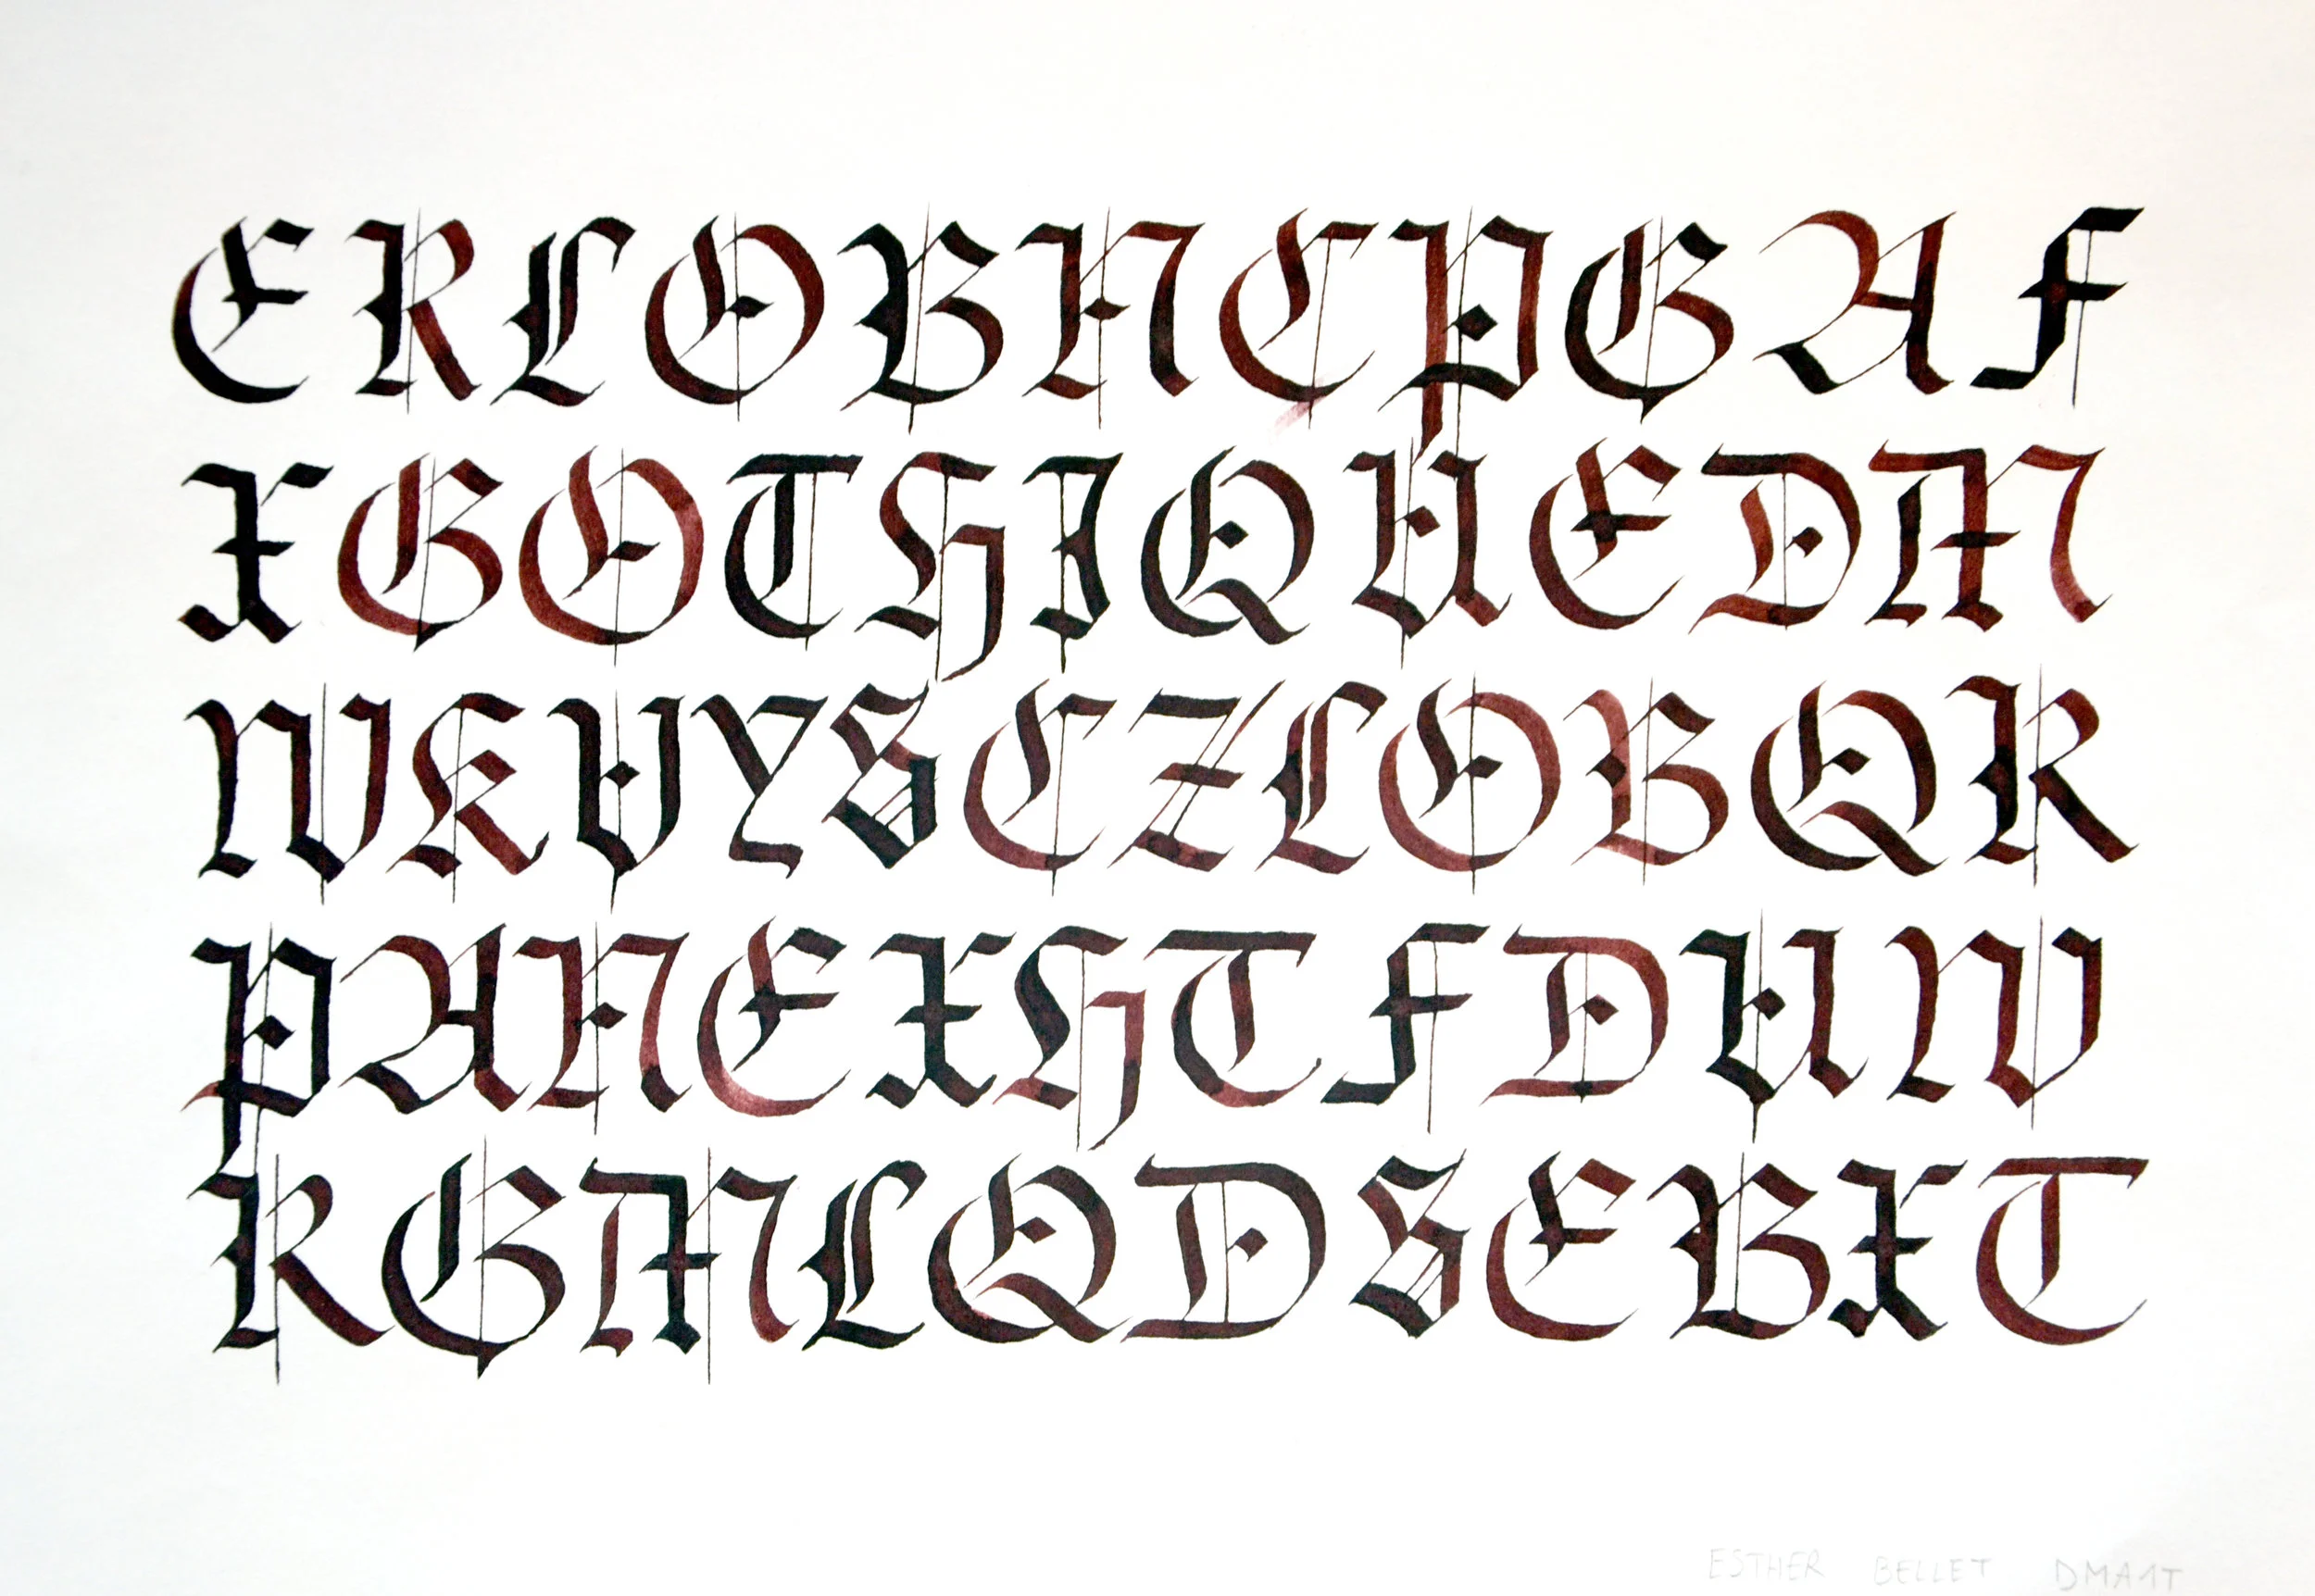 ERLOBNCPGAF
XGOTHIQUEDM
WKVYSCZLOBQR
PANEXHTFDUW
RGMLQDSEBXT
ESTHER BELLET DMA1T